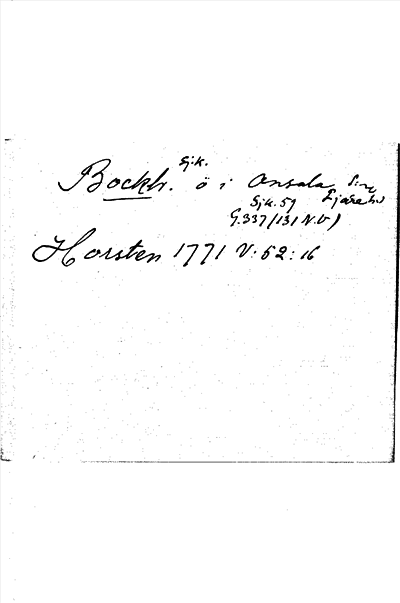 Sjk.
Bockh. ö i Onsala sn
Fjäre hd
Sjk. 59
G.337/131 N.V)
Horsten 1771 V:52:16